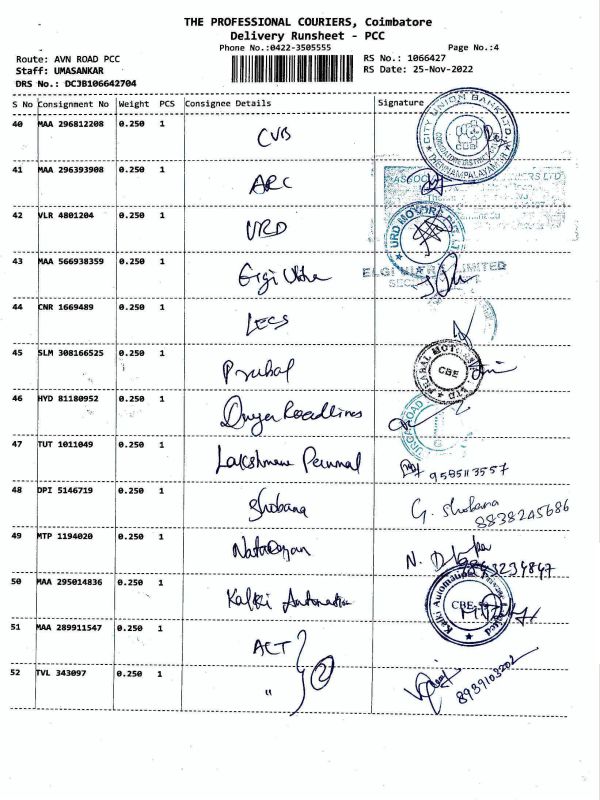 THE PROFESSIONAL COURIERS, Coimbatore
Delivery Runsheet - PCC
Phone No.:0422-3505555 Page No.:4
Route: AVN ROAD PCC RS No.: 1066427
Staff: UMASANKAR RS Date: 25-Nov-2022
DRS No.: DCJB106642704
S No Consignment No Weight PCS Consignee Details Signature
40 MAA 296812208 0.250 1 CUB
CITY UNION BANK LTD.
41 MAA 296393908 0.250 1 ARC
42 VLR 4801204 0.250 1 URD
URD MOTORS
43 MAA 566938359 0.250 1 Elgi Ultra
ELGI ULTRA LIMITED
44 CNR 1669489 0.250 1 LECS
45 SLM 308166525 0.250 1 Prabal
PRABAL MOTORS
CBE
46 HYD 81180952 0.250 1 Roadlines
47 TUT 1011049 0.250 1 Lakshmana Perumal 9585113557
48 DPI 5146719 0.250 1 Shobana G. Shobana
8838245686
49 MTP 1194020 0.250 1 Natarajan N.
9843234847
50 MAA 295014836 0.250 1 Kalki Automation
Kalki Automation Private Limited
CBE
51 MAA 289911547 0.250 1 ACT
52 TVL 343097 0.250 1 " 2
8939103202